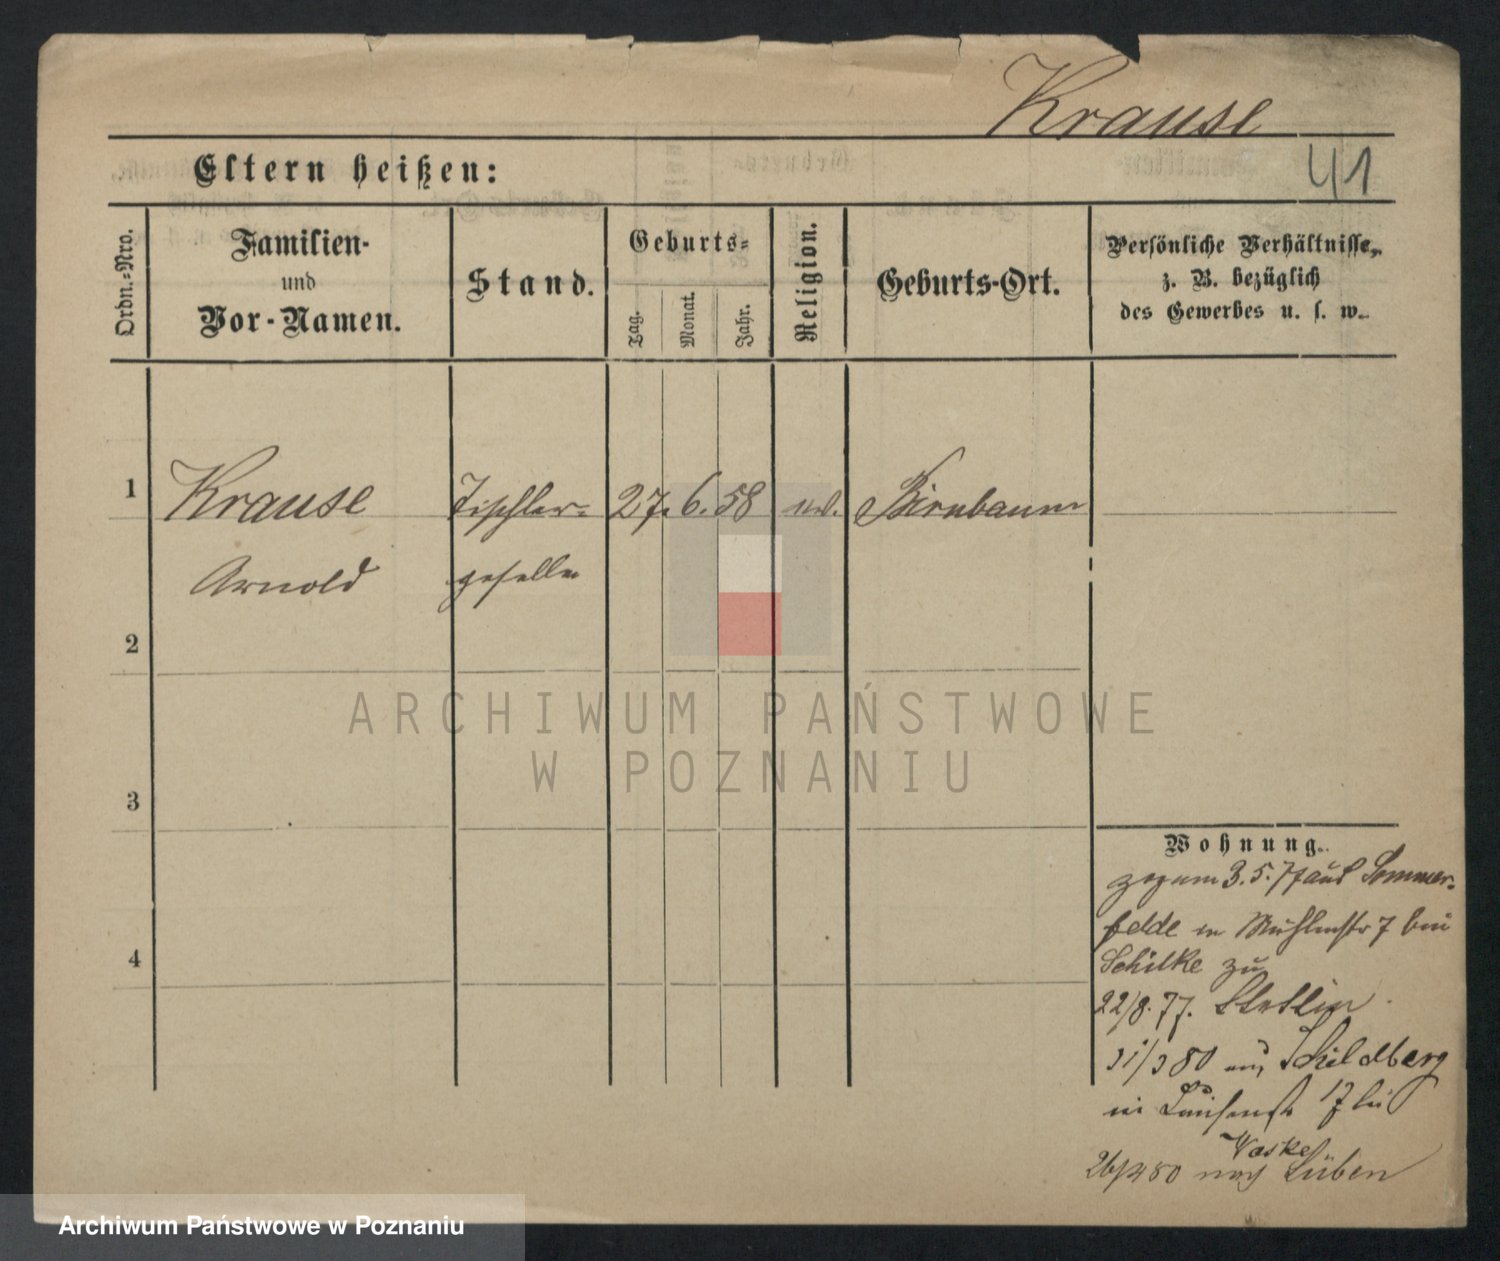 Krause
41
Eltern heißen:
Ordn.-Nro.
Familien-
und
Vor-Namen.
Stand.
Geburts-
Tag.
Monat.
Jahr.
Religion.
Geburts-Ort.
Persönliche Verhältnisse,
z. B. bezüglich
des Gewerbes u. s. w.
1
Krause
Tischler-
27. 6. 58
ev.
Birnbaum
Arnold
geselle
2
3
4
Wohnung.
zog am 3.5.77 aus Sommer-
felde in Mühlenstr 7 bei
Schilke zu
22/8. 77. Stettin
31/3 80 aus Schildberg
in Louisenstr 17 bei
Waske
26/4 80 nach Lüben
ARCHIWUM PAŃSTWOWE
W POZNANIU
Archiwum Państwowe w Poznaniu